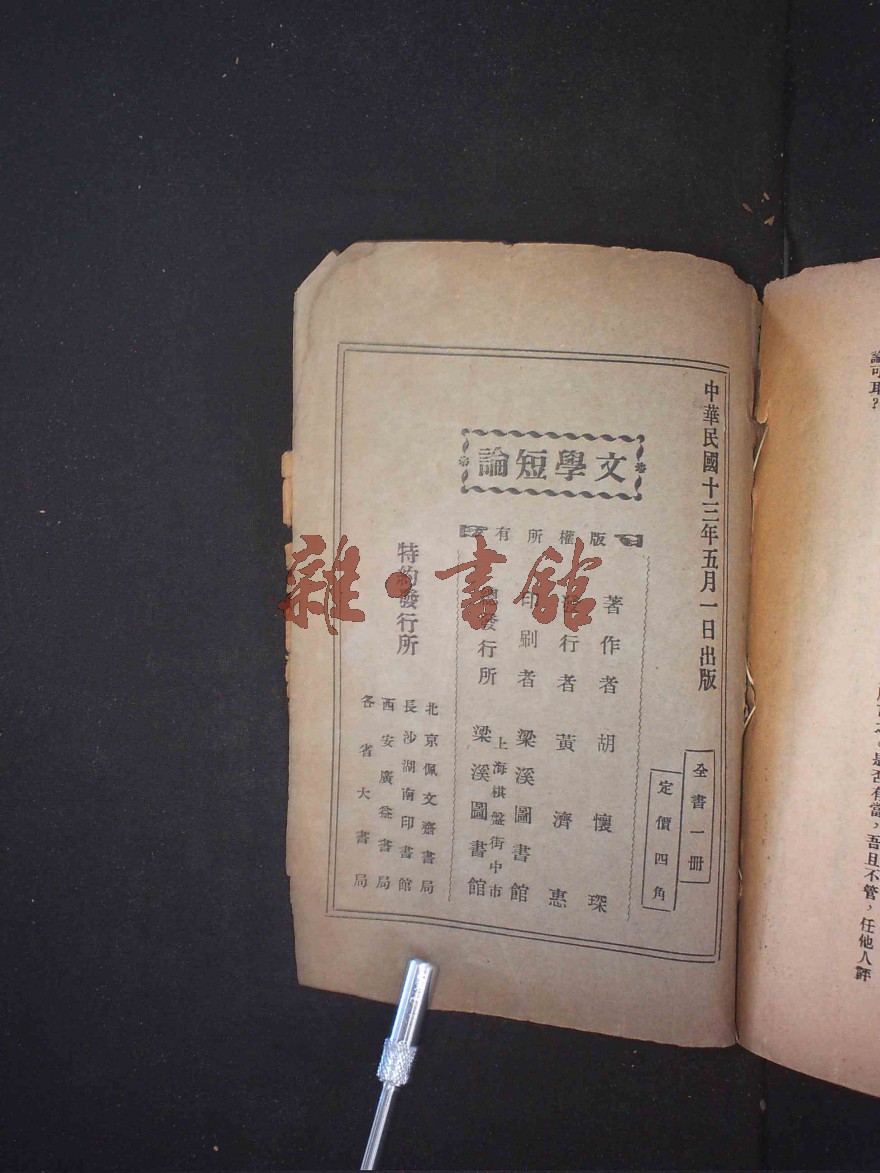 中華民國十三年五月一日出版
全書一冊
定價四角
文學短論
版權所有
著作者 胡懷琛
發行者 黃濟惠
印刷者 梁溪圖書館
上海棋盤街中市
總發行所 梁溪圖書館
特約發行所
北京佩文齋書局
長沙湖南印書館
西安廣益書局
各省大書局
雜·書館
論可耳？
是否有當，吾且不管，任他人評